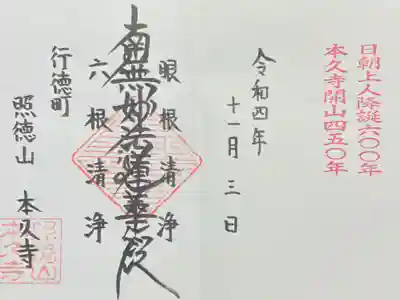 日朝上人降誕六〇〇年
本久寺開山四五〇年
令和四年
十一月三日
眼根清浄
南無妙法蓮華経
六根清浄
行徳町
照徳山 本久寺